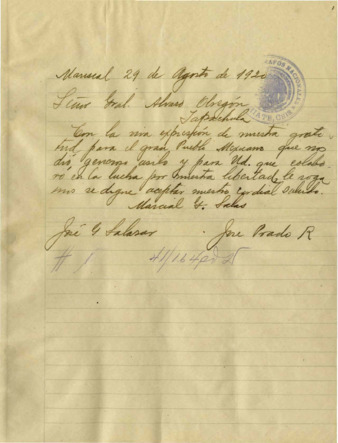 Mariscal 29 de Agosto de 192
Señor Gral. Alvaro Obregón
Tapachula
Con la mra expresion de nuestra grati
tud, para el gran Pueblo Mexicano que nos
dió, generoso asilo y para Ud. que colabo
ró en la lucha por nuestra libertad, le roga
mos se digne aceptar nuestro cordial saludo.
Marcial G. Salas
José G Salazar. Jose Prado R
# 1 41/26 4